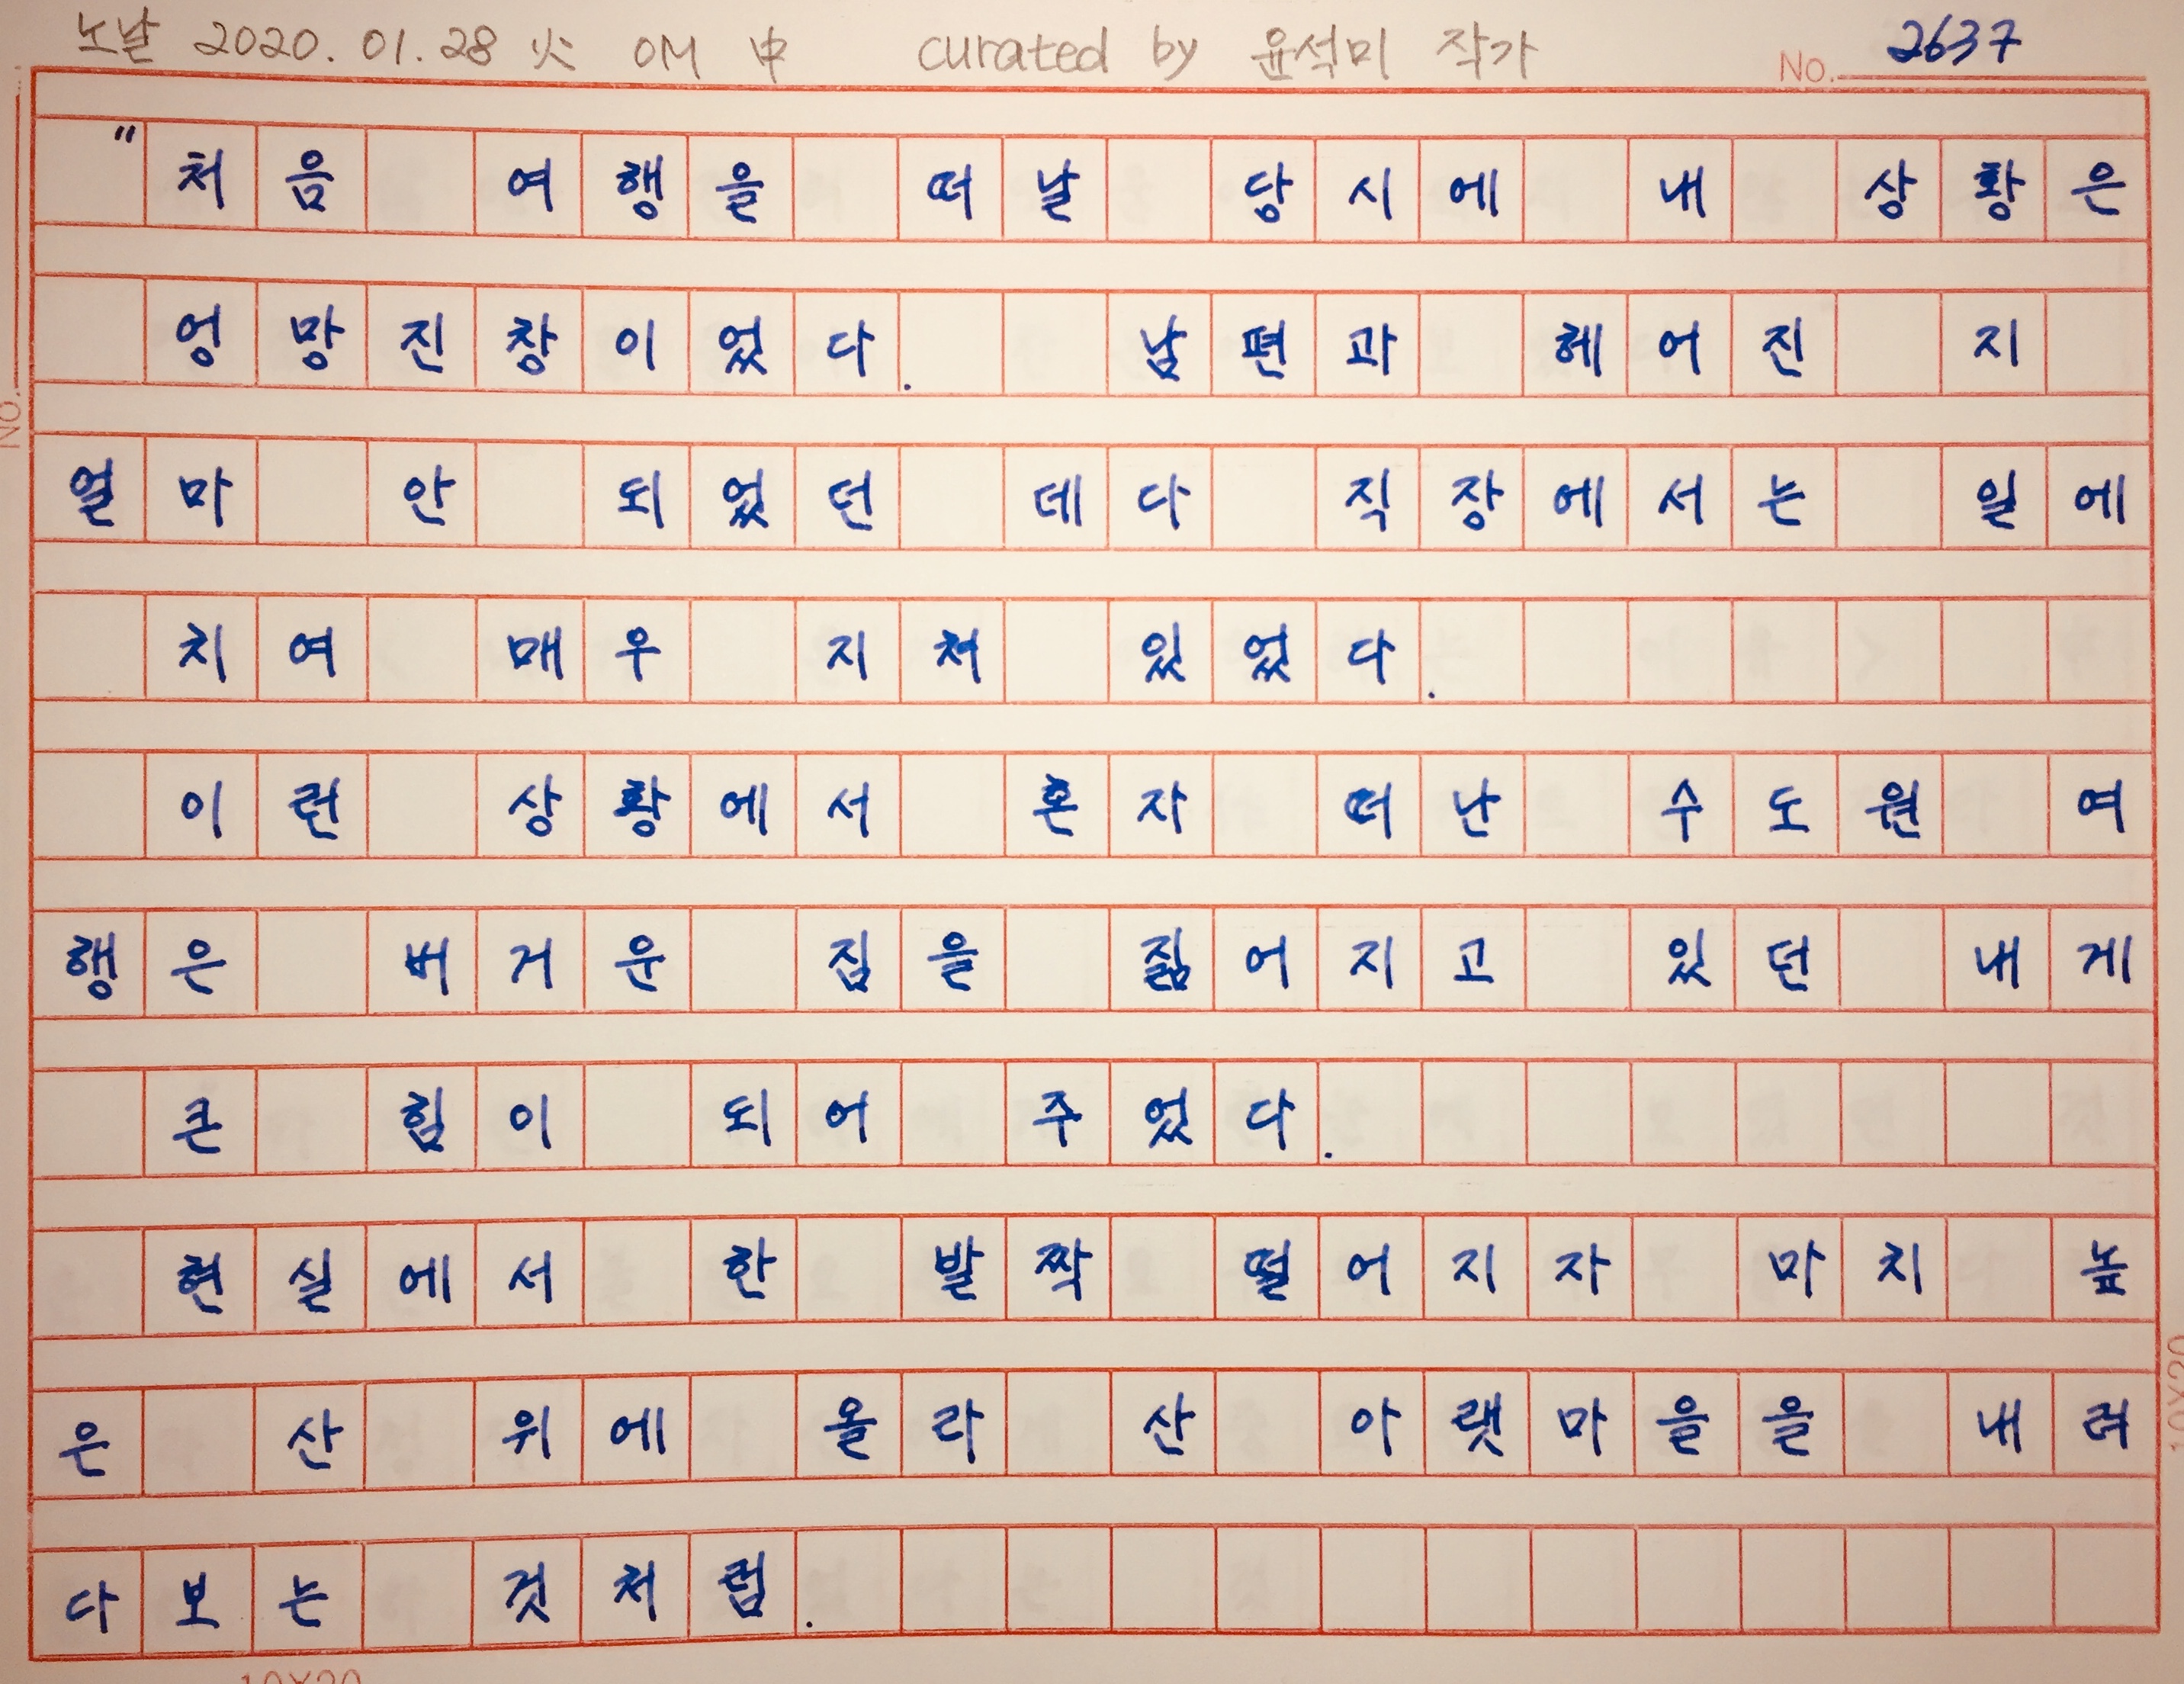 노날 2020. 01. 28 火 OM 中 curated by 윤석미 작가 No. 2637
"처음 여행을 떠날 당시에 내 상황은
엉망진창이었다. 남편과 헤어진 지
얼마 안 되었던 데다 직장에서는 일에
치여 매우 지쳐 있었다.
이런 상황에서 혼자 떠난 수도원 여
행은 버거운 짐을 짊어지고 있던 내게
큰 힘이 되어 주었다.
현실에서 한 발짝 떨어지자 마치 높
은 산 위에 올라 산 아랫마을을 내려
다보는 것처럼.
No.
10X20
10X20